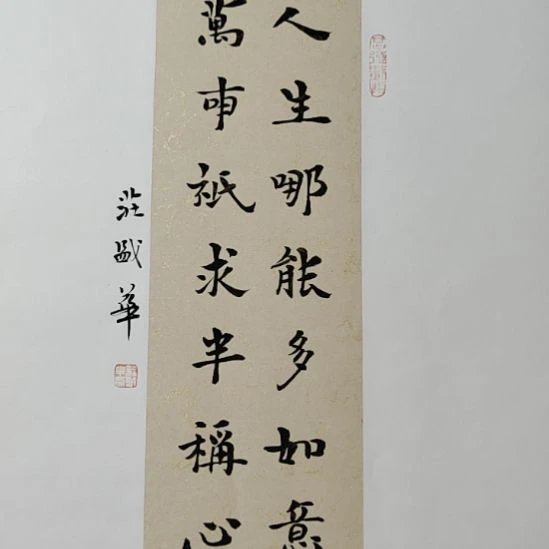 人生哪能多如意
萬事祇求半稱心
莊盛華